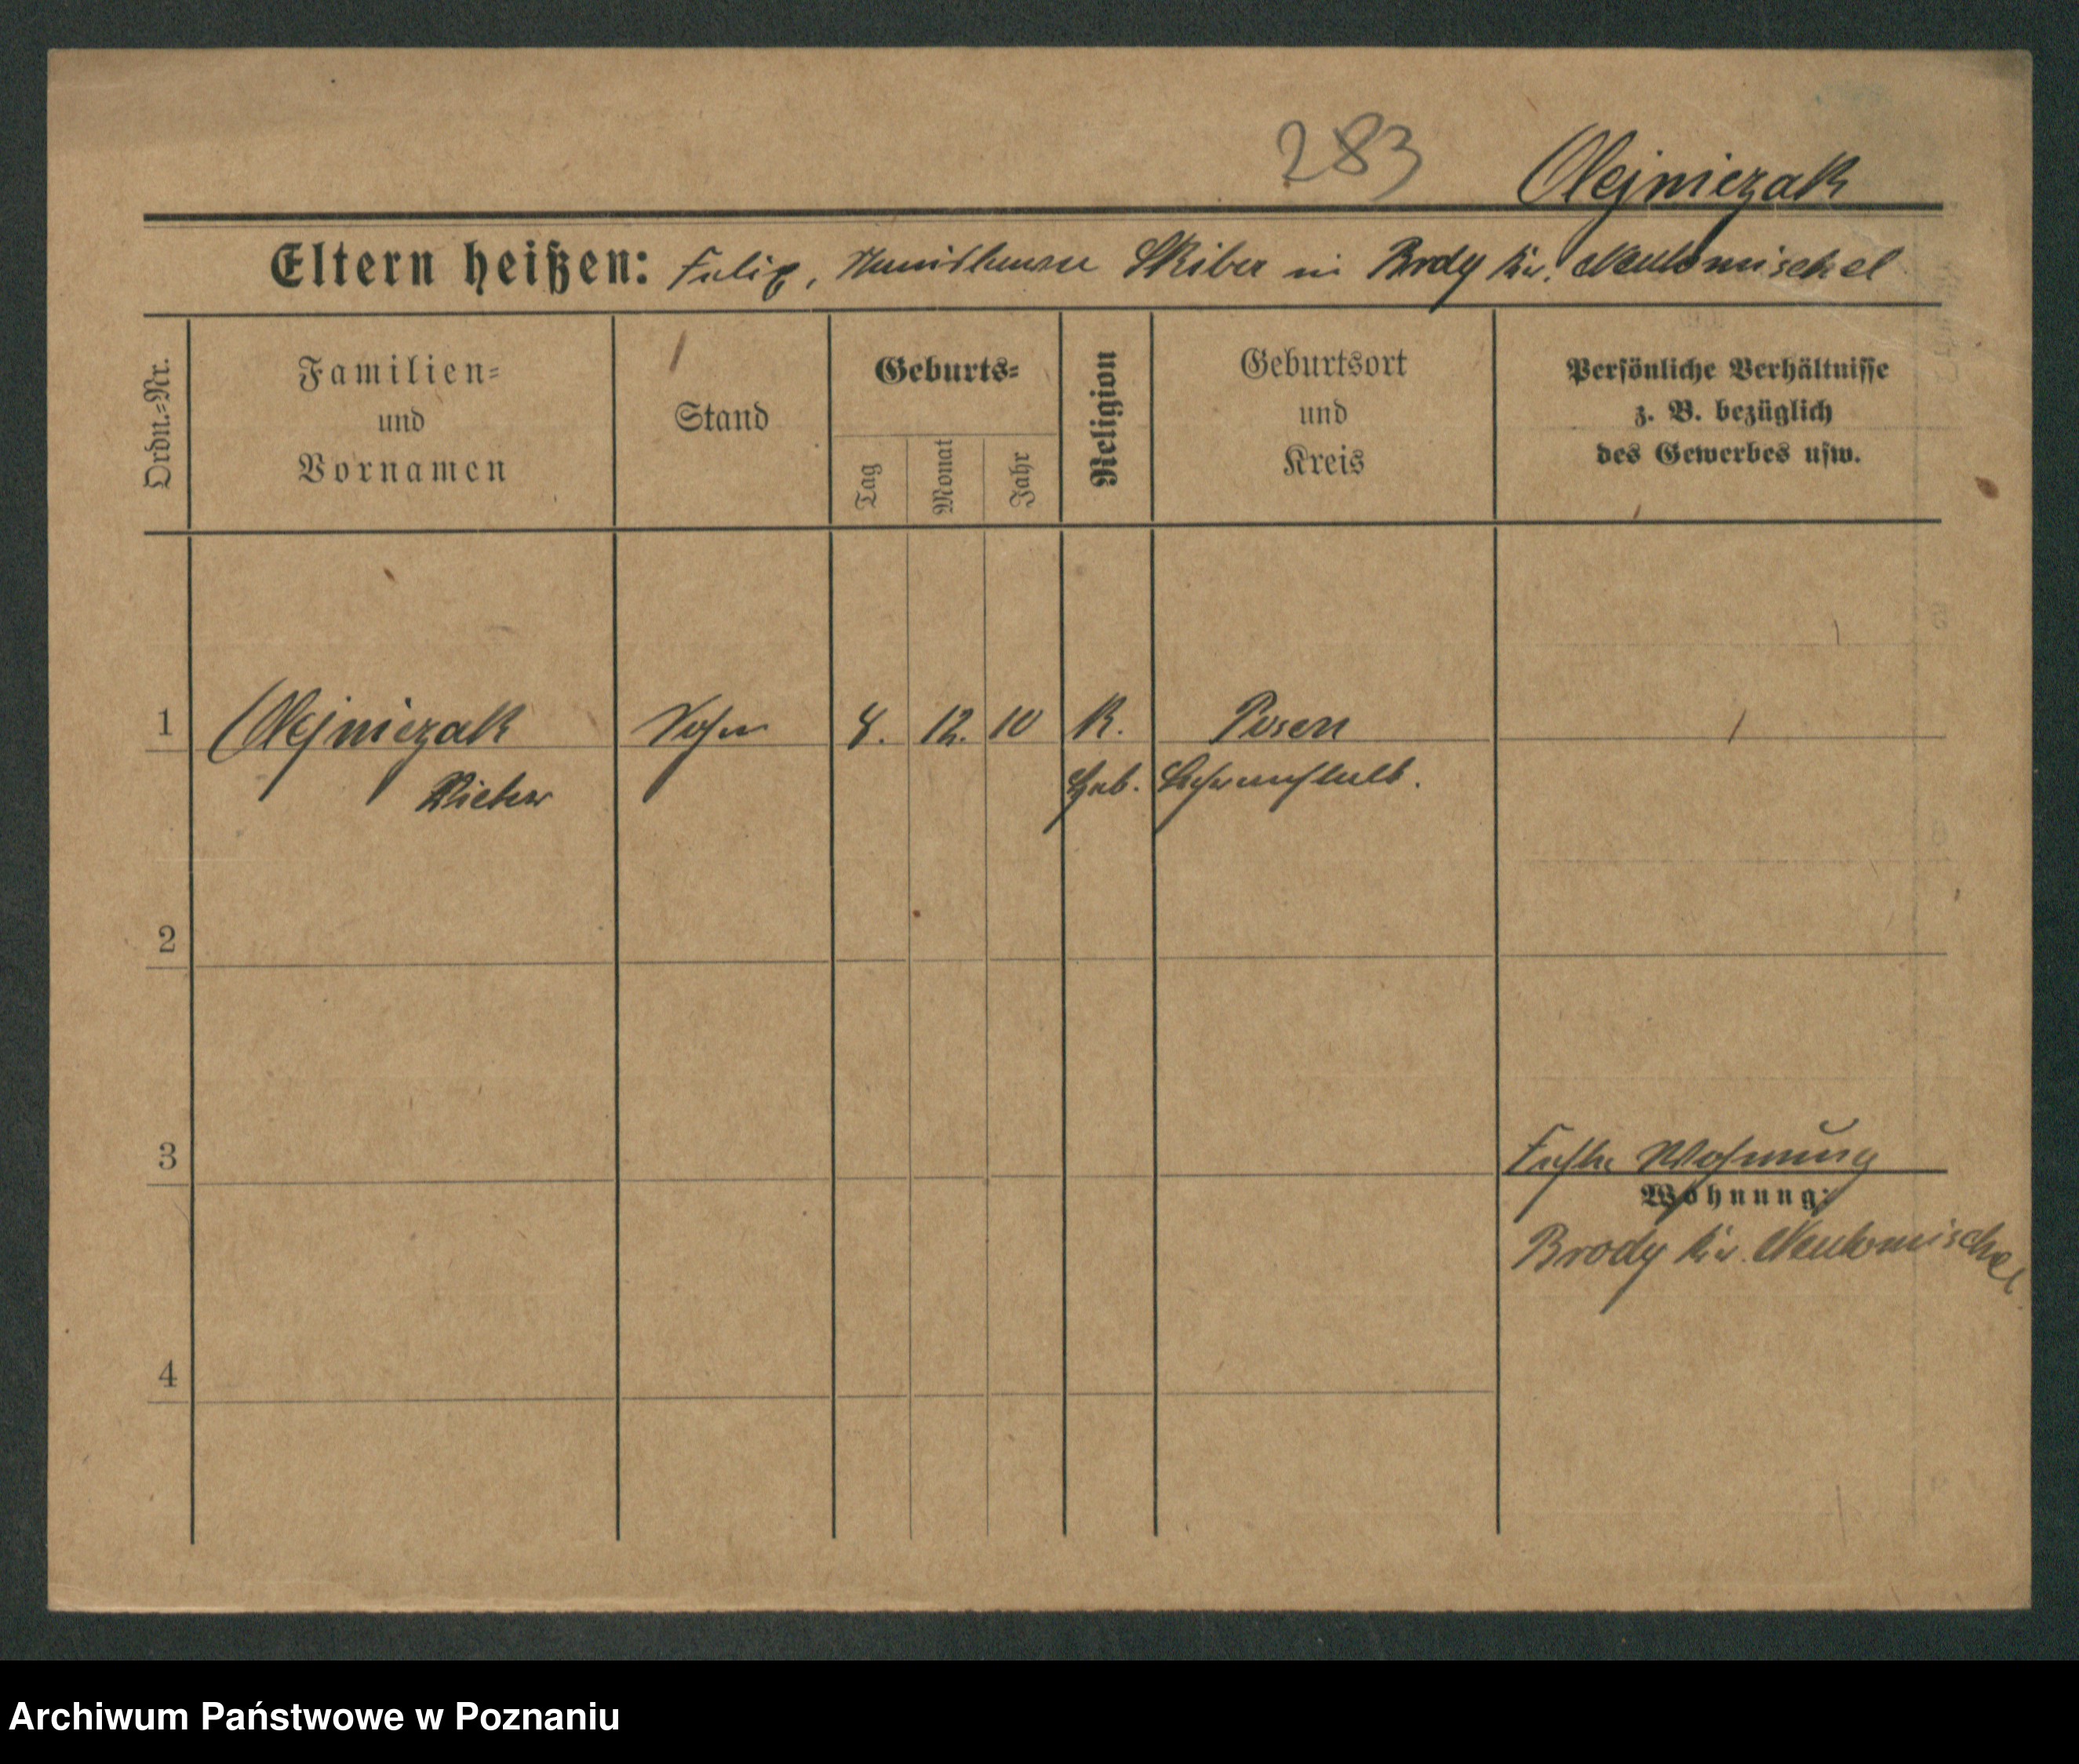 283 Olejniczak
Eltern heißen: Felix, Skiba in Brody Kr. Neutomischel
Ordn.=Nr.
Familien=
und
Vornamen
Stand
Geburts=
Tag
Monat
Jahr
Religion
Geburtsort
und
Kreis
Persönliche Verhältnisse
z. B. bezüglich
des Gewerbes usw.
1 Olejniczak Sohn 8. 12. 10 K. Posen
Geb.
2
3
Wohnung
Wohnung:
Brody Kr. Neutomischel
4
Archiwum Państwowe w Poznaniu